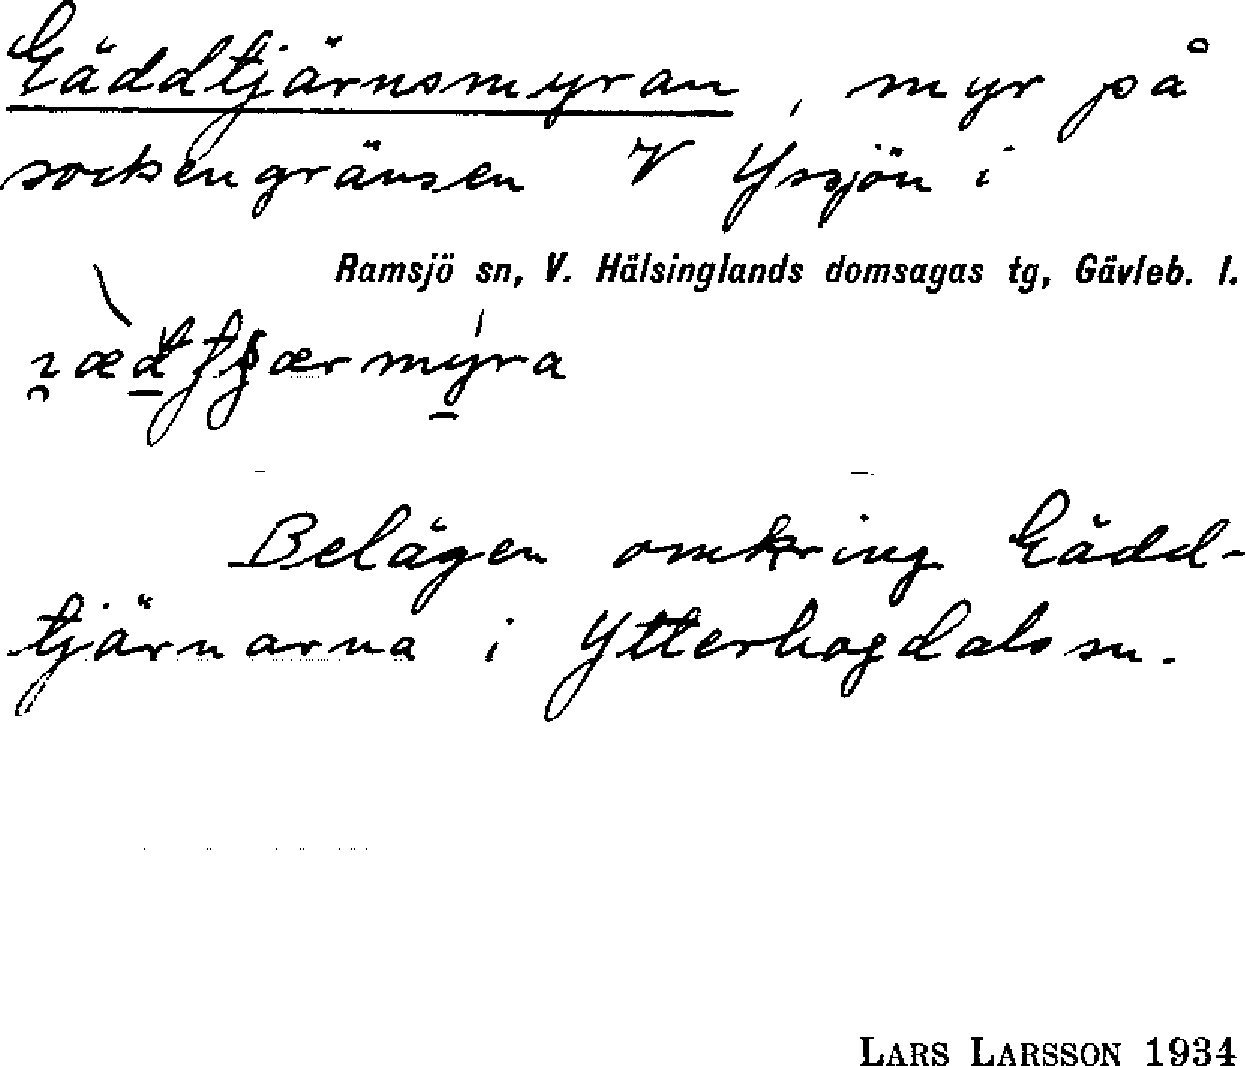 Gäddtjärnsmyran, myr på
sockengränsen V Yssjön i
Ramsjö sn, V. Hälsinglands domsagas tg, Gävleb. l.
Belägen omkring Gädd-
tjärnarna i Ytterhogdals sn.
LARS LARSSON 1934